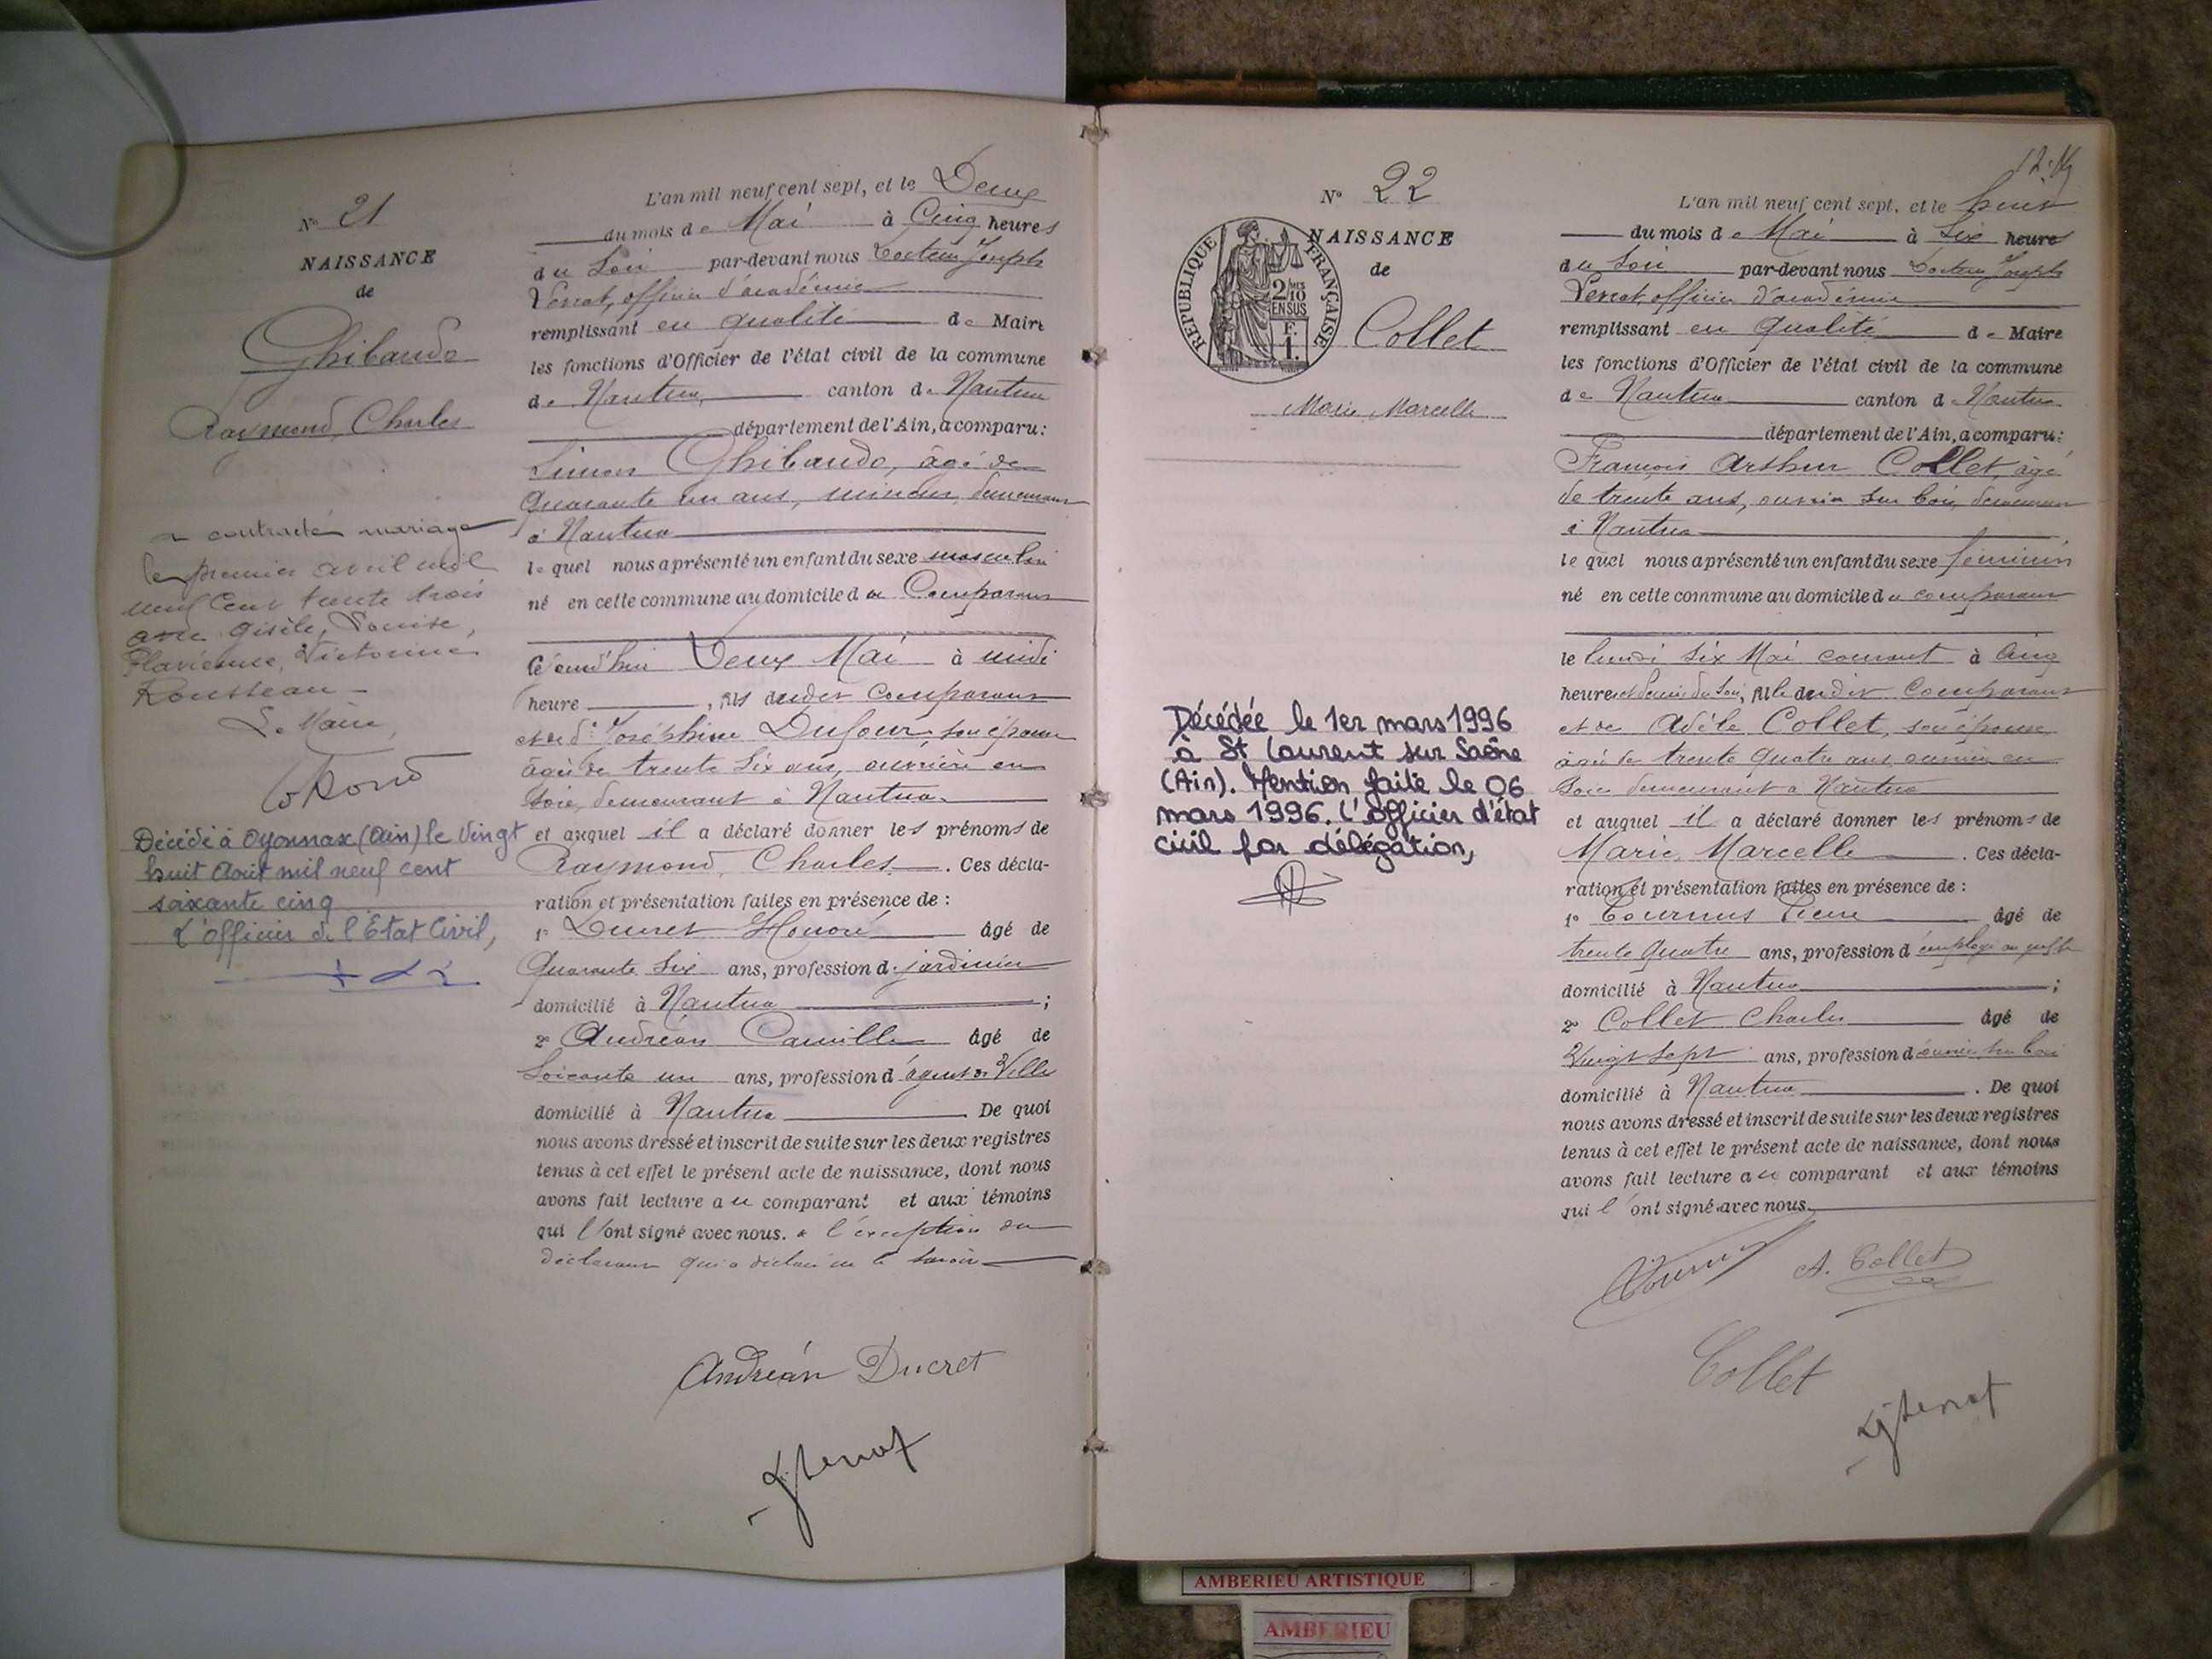 N° 21
NAISSANCE
de
Ghibaudo
Raymond, Charles
a contracté mariage
le premier avril mil
neuf cent trente trois
avec Gisèle, Louise,
Flavienne, Victorine
Rousseau
Le Maire,
Décédé à Oyonnax (Ain) le vingt
huit Août mil neuf cent
soixante cinq
L'officier de l'Etat Civil,
L'an mil neuf cent sept, et le Deux
du mois de Mai à Cinq heures
du Soir par-devant nous Docteur Joseph
officier d'académie
remplissant en qualité de Maire
les fonctions d'Officier de l'état civil de la commune
de Nantua, canton de Nantua
département de l'Ain, a comparu:
Simon Ghibaudo, âgé de
Quarante un ans, mineur, demeurant
à Nantua
lequel nous a présenté un enfant du sexe masculin
né en cette commune au domicile du Comparant
Cejourd'hui Deux Mai à midi
heure, fils dudit Comparant
et de Joséphine Dufour, son épouse
âgée de trente six ans, ouvrière en
soie, demeurant à Nantua.
et auquel il a déclaré donner les prénoms de
Raymond, Charles. Ces décla-
ration et présentation faites en présence de :
1° Ducret Honoré âgé de
Quarante six ans, profession de jardinier
domicilié à Nantua ;
2° Andréan Camille âgé de
Soixante un ans, profession d'agent de Ville
domicilié à Nantua. De quoi
nous avons dressé et inscrit de suite sur les deux registres
tenus à cet effet le présent acte de naissance, dont nous
avons fait lecture au comparant et aux témoins
qui l'ont signé avec nous. à l'exception du
déclarant qui a déclaré ne le savoir
Andréan Ducret
N° 22
NAISSANCE
de
RÉPUBLIQUE FRANÇAISE
2/10 MES
EN SUS
F.
1.
Collet
Marie, Marcelle
Décédée le 1er mars 1996
à St Laurent sur Saône
(Ain). Mention faite le 06
mars 1996. L'Officier d'état
civil par délégation,
L'an mil neuf cent sept, et le huit
du mois de Mai à Six heures
du Soir par-devant nous Docteur Joseph
officier d'académie
remplissant en qualité de Maire
les fonctions d'Officier de l'état civil de la commune
de Nantua canton de Nantua
département de l'Ain, a comparu:
François Arthur Collet, âgé
de trente ans, ouvrier sur bois, demeurant
à Nantua
lequel nous a présenté un enfant du sexe féminin
né en cette commune au domicile du comparant
le lundi Six Mai courant à Cinq
heures et demie du Soir, fille dudit Comparant
et de Adèle Collet, son épouse
âgée de trente quatre ans, ouvrière en
Soie demeurant à Nantua
et auquel il a déclaré donner les prénoms de
Marie, Marcelle. Ces décla-
ration et présentation faites en présence de :
1° Tournus Pierre âgé de
trente quatre ans, profession d'employé au
domicilié à Nantua ;
2° Collet Charles âgé de
Vingt Sept ans, profession d'ouvrier sur bois
domicilié à Nantua. De quoi
nous avons dressé et inscrit de suite sur les deux registres
tenus à cet effet le présent acte de naissance, dont nous
avons fait lecture au comparant et aux témoins
qui l'ont signé avec nous.
A. Collet
Collet
AMBERIEU ARTISTIQUE
AMBERIEU